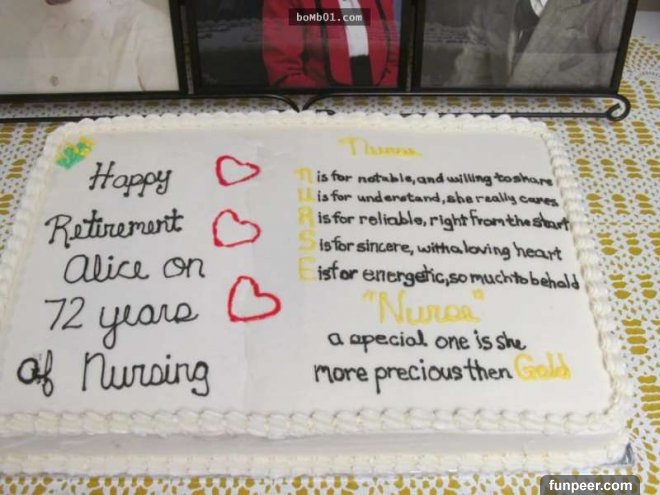 boMb01.com
Happy
Retirement
Alice on
72 years
of Nursing
Nurse
n is for notable, and willing to share
U is for understand, she really cares
R is for reliable, right from the start
S is for sincere, with a loving heart
E is for energetic, so much to behold
"Nurse"
a special one is she
more precious then Gold
funpeer.com